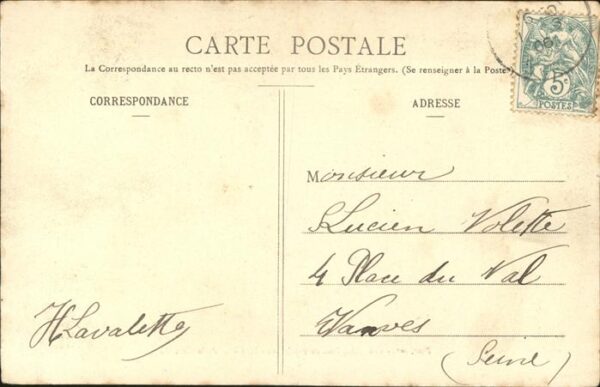 CARTE POSTALE
La Correspondance au recto n'est pas acceptée par tous les Pays Étrangers. (Se renseigner à la Poste)
CORRESPONDANCE
ADRESSE
5c
POSTES
Monsieur
Lucien Volette
4 Place du Val
Vanves
(Seine)
HLavalette